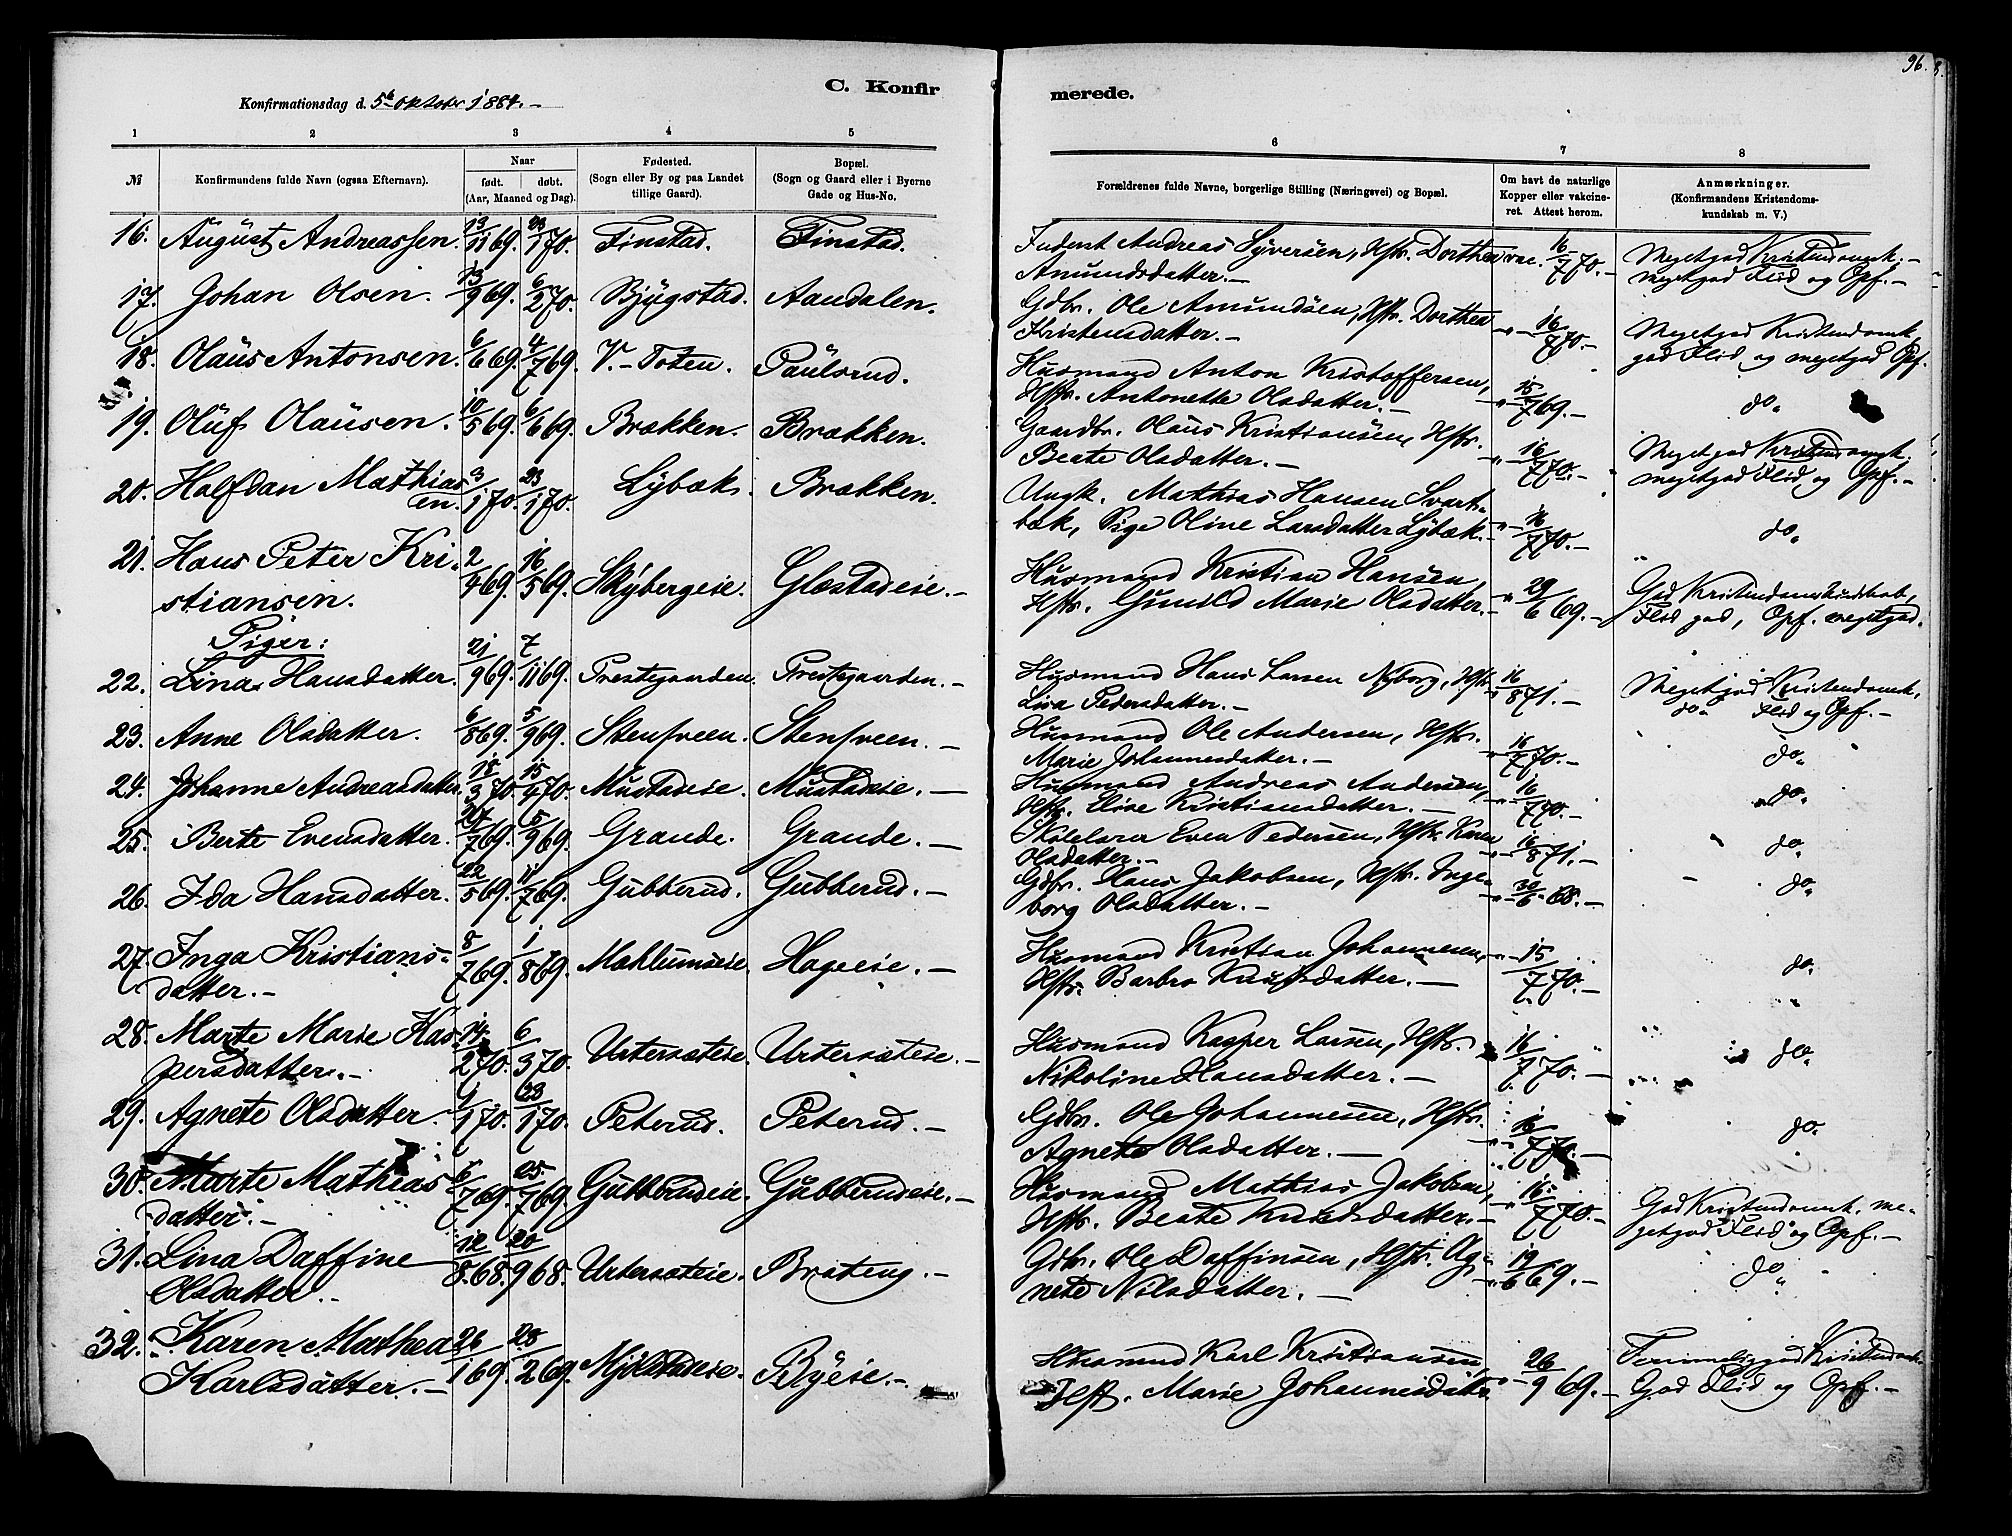 96.
C. Konfir
merede.
Konfirmationsdag d. 5te Oktober 1884.-
1 2 3 4 5 6 7 8
№ Konfirmandens fulde Navn (ogsaa Efternavn). Naar født. døbt. (Aar, Maaned og Dag). Fødested. (Sogn eller By og paa Landet tillige Gaard). Bopæl. (Sogn og Gaard eller i Byerne Gade og Hus-No. Forældrenes fulde Navne, borgerlige Stilling (Næringsvei) og Bopæl. Om havt de naturlige Kopper eller vakcineret. Attest herom. Anmærkninger. (Konfirmandens Kristendomskundskab m. V.)
16. August Andreassen. 19/11 69. 23/1 70. Finstad. Finstad. Inderst Andreas Syversen, Hstr. Dorthea vac. 16/7 70.- Megetgod Kristendomsk.-
Amundsdatter.- megetgod Flid og Opf.-
17. Johan Olsen. 13/9 69. 6/2 70. Bjügstad. Aandalen. Gdbr. Ole Amundsen, Hstr. Dorthea
Kristensdatter.- -"- 16/7 70.- Megetgod Kristendomsk.
18. Olaüs Antonsen. 6/6 69. 4/7 69. V.-Toten. Paülsrud. god Flid og megetgod Opf.
Husmand Anton Kristoffersen,
Hstr. Antonette Olsdatter.- -"- 15/7 69.- do.
19. Olüf Olaüsen. 10/5 69. 6/6 69. Brækken. Brækken. Gaardbr. Olaüs Kristiansen, Hstr.
Beate Olsdatter.- -"- 16/7 70.- Megetgod Kristendomsk.
megetgod Flid og Opf.-
20. Halfdan Mathias 3/1 70. 23/1 70. Lybæk. Brækken. Ungk. Mathias Hansen Svart-
en. bæk, Pige Oline Larsdatter Lybæk.- -"- 16/7 70.- do.
21. Hans Peter Kri- 2/4 69. 16/5 69. Skybergeie. Glæstadeie.- Husmand Kristian Hansen,
stiansen. Hstr. Gunild Marie Olsdatter.- " 29/6 69.- God Kristendomskundskab,
Flid god, Opf. megetgod.
Piger:
22. Lina Hansdatter. 21/9 69. 7/11 69. Prestegaarden. Prestegaarden.- Husmand Hans Larsen Nyborg, Hstr.
Lisa Pedersdatter.- " 16/8 71.- Megetgod Kristendomsk.
do. Flid og Opf.-
23. Anne Olsdatter. 6/8 69. 5/9 69. Stensveen. Stensveen.- Husmand Ole Andersen, Hstr.
Marie Johannesdatter.- -"- 16/7 70.- do.
24. Johanne Andreasdatter. 18/3 70. 15/4 70. Mustadeie. Mustadeie.- Husmand Andreas Andersen,
Hstr. Elise Kristiansdatter.- -"- 16/7 70.- do.
25. Berte Evensdatter. 27/7 69. 5/9 69. Grande. Grande.- Skolelærer Even Pedersen, Hstr. Karen
Olsdatter.- -"- 16/8 71.- do.
26. Ida Hansdatter. 22/5 69. 11/7 69. Gubberud. Gubberud.- Gdbr. Hans Jakobsen, Hstr. Inge-
borg Olsdatter.- -"- 30/6 68.- do.
27. Inga Kristians- 8/7 69. 1/8 69. Mæhlumseie. Hageeie.- Husmand Kristian Johannesen,
datter.- Hstr. Barbro Knutsdatter.- -"- 15/7 70.- do.
28. Marte Marie Kas- 14/2 70. 6/3 70. Urtersæteie. Urtersæteie.- Husmand Kasper Larsen, Hstr.
persdatter.- Nikoline Hansdatter.- 16/7 70.- do.
29. Agnete Olsdatter. 1/1 70. 23/1 70. Peterud. Peterud.- Gdbr. Ole Johannesen, Hstr.
Agnete Olsdatter.- -"- 16/7 70.- do.
30. Marte Mathias 6/7 69. 25/7 69. Gubberudeie. Gubberudeie.- Husmand Mathias Jakobsen,
datter.- Hstr. Beate Knutsdatter.- -"- 16/7 70.- God Kristendomsk. me-
getgod Flid og Opf.-
31. Lina Daffine 12/8 68. 20/9 68. Urtersæteie. Brateng.- Gdbr. Ole Daffinsen, Hstr. Ag-
Olsdatter.- nete Nilsdatter.- -"- 19/6 69.- do.
32. Karen Mathea 26/1 69. 28/2 69. Mjölstadeie. Byeie.- Husmand Karl Kristiansen,
Karlsdatter.- Hst. Marie Johannesdatter " 26/9 69.- Temmelig god Kristendomsk.
God Flid og Opf.-